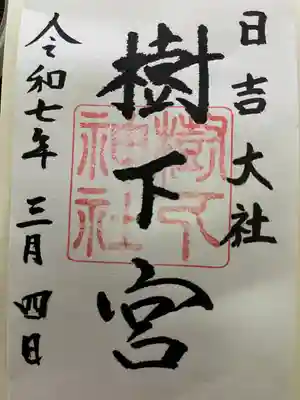 日吉大社
樹下宮
樹下神社
令和七年 三月 四日